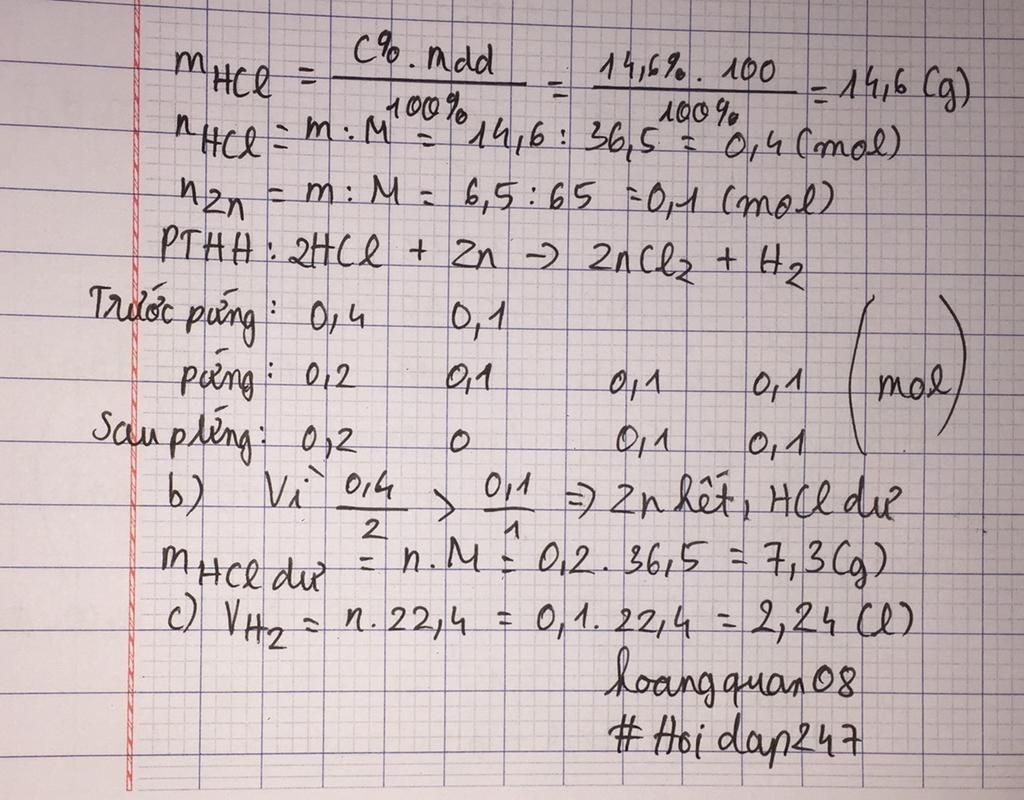 mHCl = C%.mdd / 100% = 14,6%.100 / 100% = 14,6 (g)
nHCl = m:M = 14,6 : 36,5 = 0,4 (mol)
nZn = m:M = 6,5:65 = 0,1 (mol)
PTHH: 2HCl + Zn → ZnCl2 + H2
Trước pứng: 0,4 0,1
pứng: 0,2 0,1 0,1 0,1 (mol)
Sau pứng: 0,2 0 0,1 0,1
b) Vì 0,4/2 > 0,1/1 => Zn hết, HCl dư
mHCl dư = n.M = 0,2.36,5 = 7,3(g)
c) VH2 = n.22,4 = 0,1.22,4 = 2,24 (l)
hoangquan08
#Hoidap247